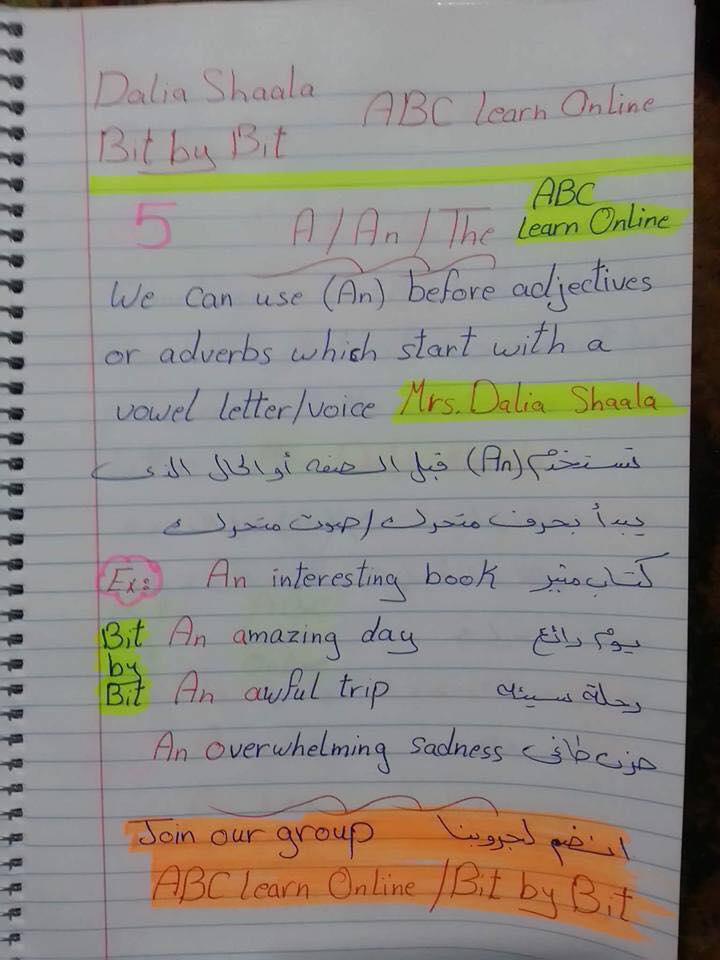 Dalia Shaala ABC Learn Online
Bit by Bit
5 A / An / The ABC Learn Online
We can use (An) before adjectives
or adverbs which start with a
vowel letter/voice Mrs. Dalia Shaala
تستخدم (An) قبل الصفه أو الحال الذى
يبدأ بحرف متحرك / صوت متحرك
Ex: An interesting book كتاب مثير
Bit An amazing day يوم رائع
by
Bit An awful trip رحلة سيئه
An overwhelming sadness حزن طاغى
Join our group انضم لجروبنا
ABC Learn Online / Bit by Bit